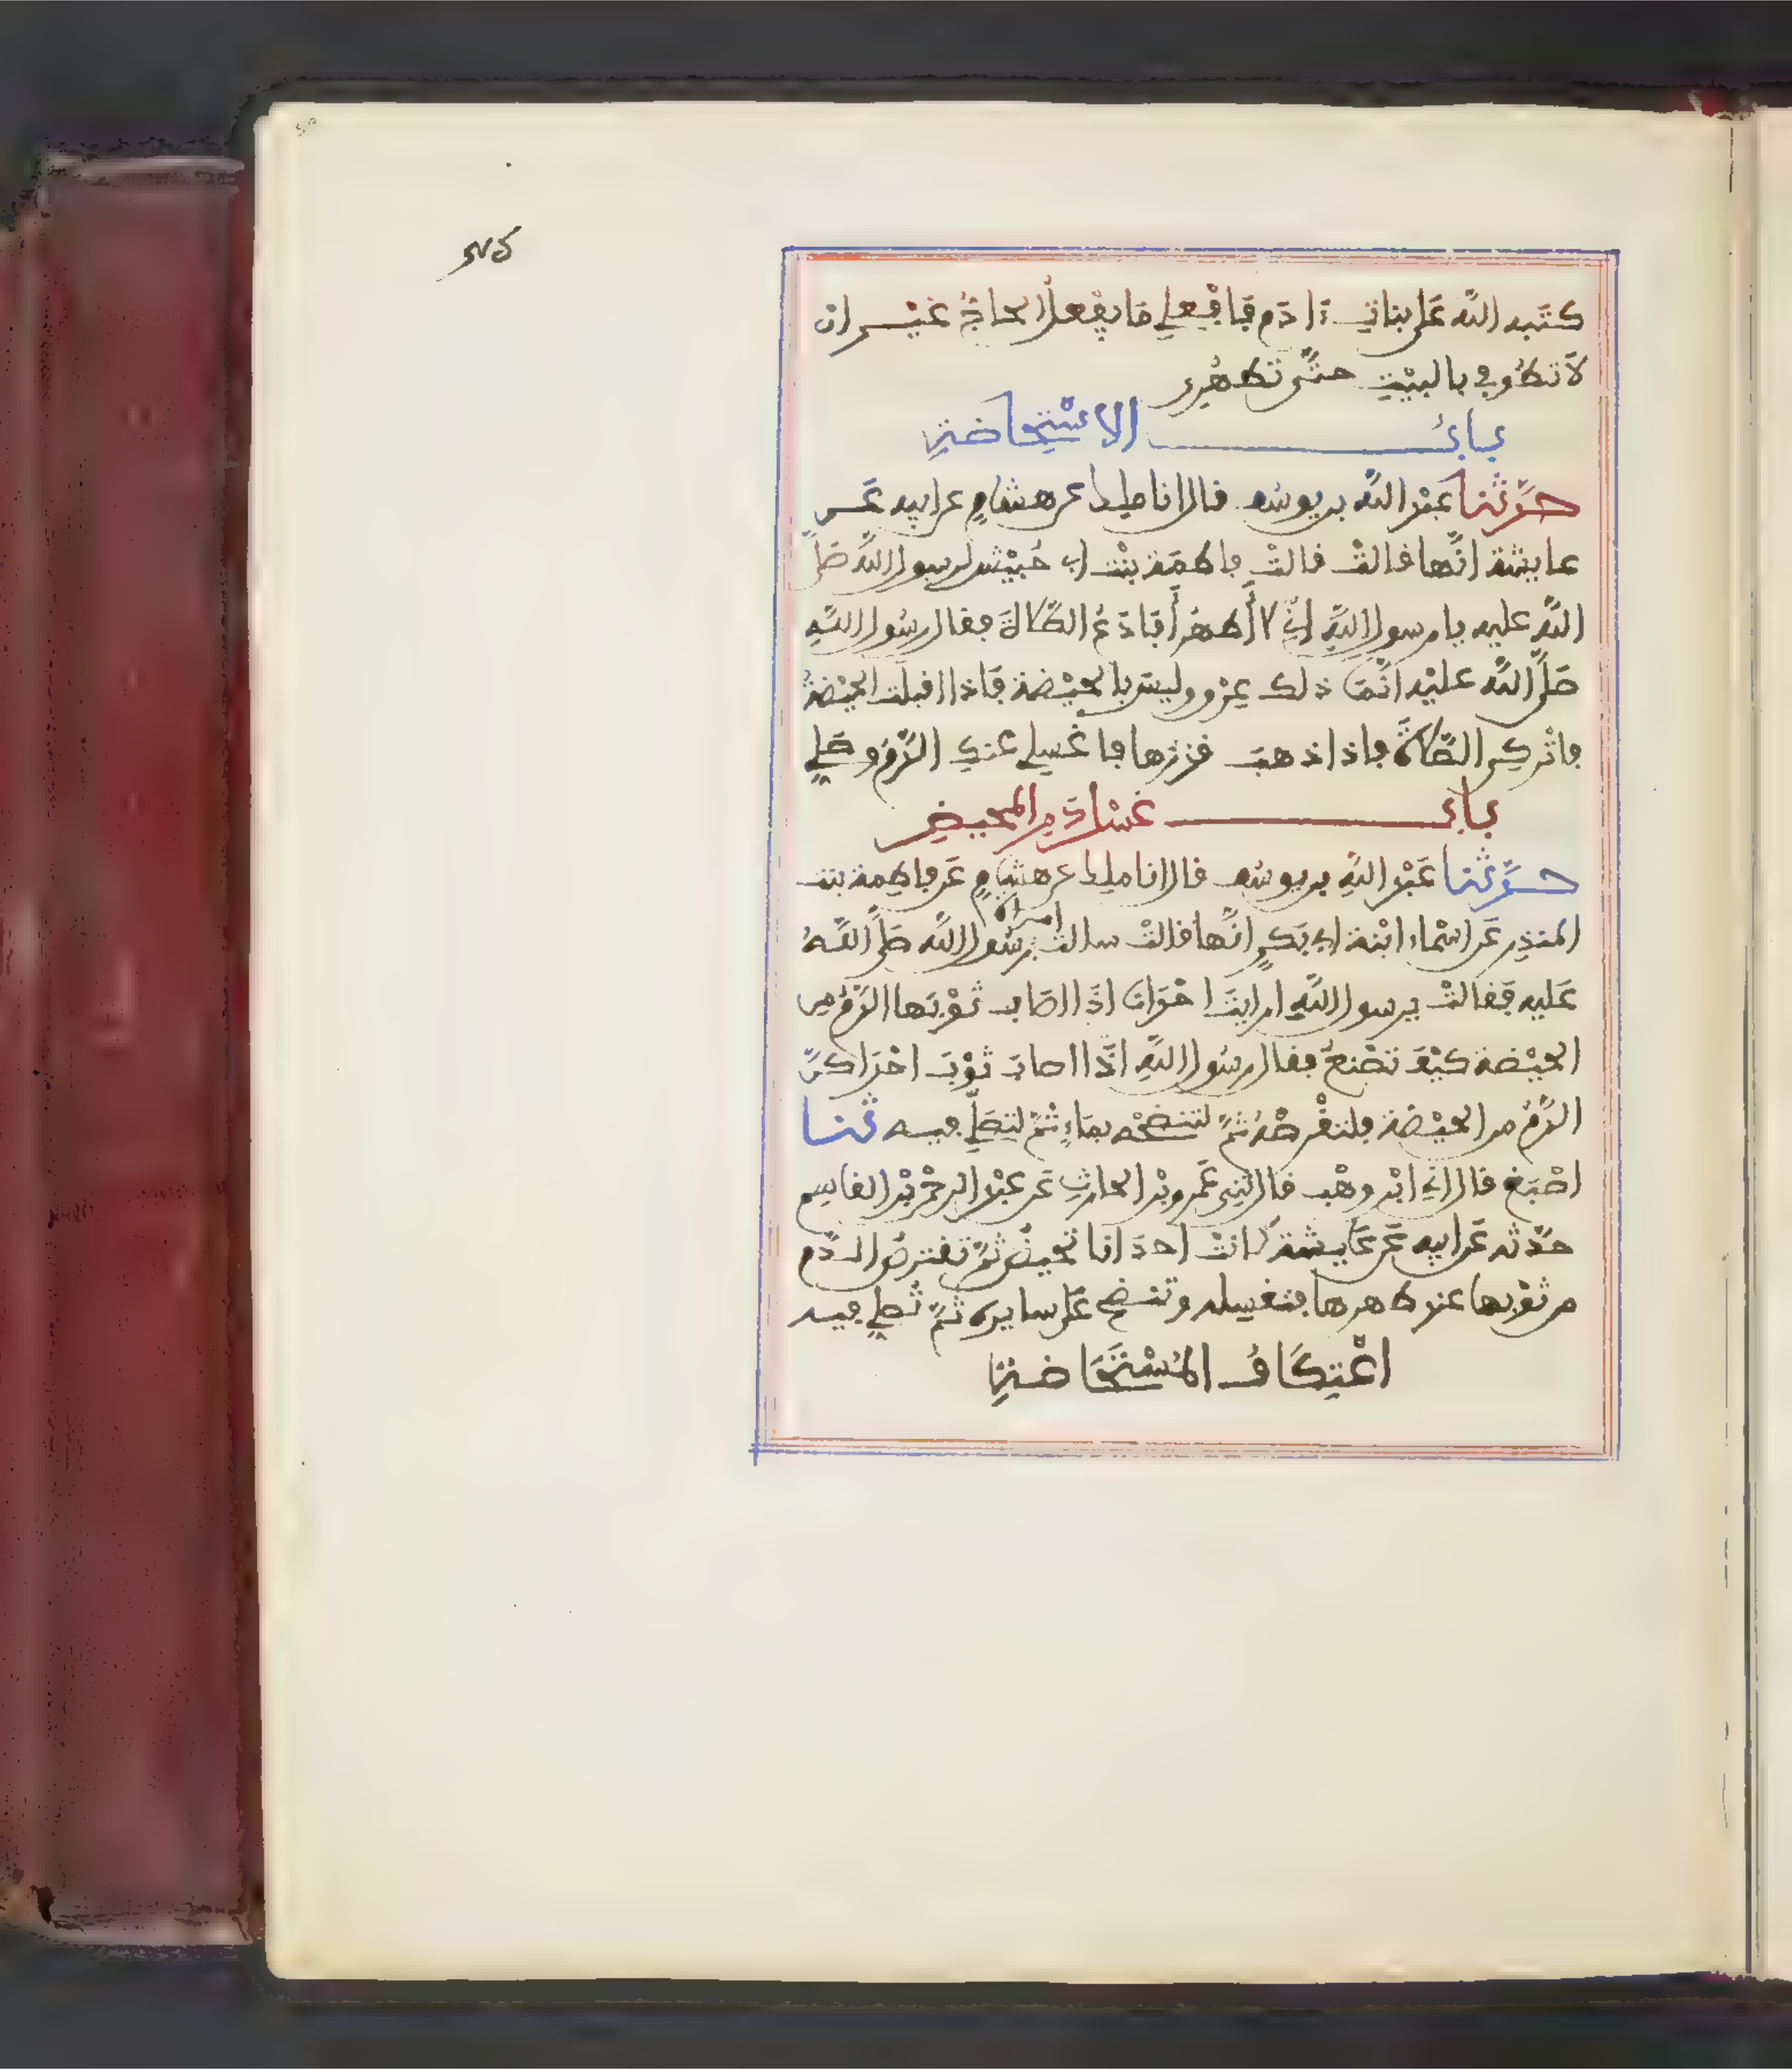 كتبه الله على بنات ءادم فافعلي ما يفعل الحاج غير ان
لا تطوفي بالبيت حتى تطهري
باب الاستحاضة
حدثنا عبد الله بن يوسف قال انا ملك عن هشام عن ابيه عن
عايشة انها قالت قالت فاطمة بنت ابي حبيش لرسول الله صلى
الله عليه يا رسول الله اني لا أطهر أفادع الصلاة فقال رسول الله
صلى الله عليه انما ذلك عرق وليس بالحيضة فاذا اقبلت الحيضة
فاتركي الصلاة فاذا ذهب قدرها فاغسلي عنك الدم وصلي
باب غسل دم المحيض
حدثنا عبد الله بن يوسف قال انا ملك عن هشام عن فاطمة بنت
المنذر عن اسماء ابنة ابي بكر انها قالت سالت امراة رسول الله صلى الله
عليه فقالت يرسول الله ارايت احدانا اذا اصاب ثوبها الدم من
الحيضة كيف تصنع فقال رسول الله اذا اصاب ثوب احداكن
الدم من الحيضة فلتقرصه ثم لتنضحه بماء ثم لتصلي فيه ثنا
اصبغ قال اني ابن وهب قال ثني عمرو بن الحارث عن عبد الرحمن بن القاسم
حدثه عن ابيه عن عايشة كانت احدانا تحيض ثم تقترص الدم
من ثوبها عند طهرها فتغسله وتنضح على سايره ثم تصلي فيه
اعتكاف المستحاضة